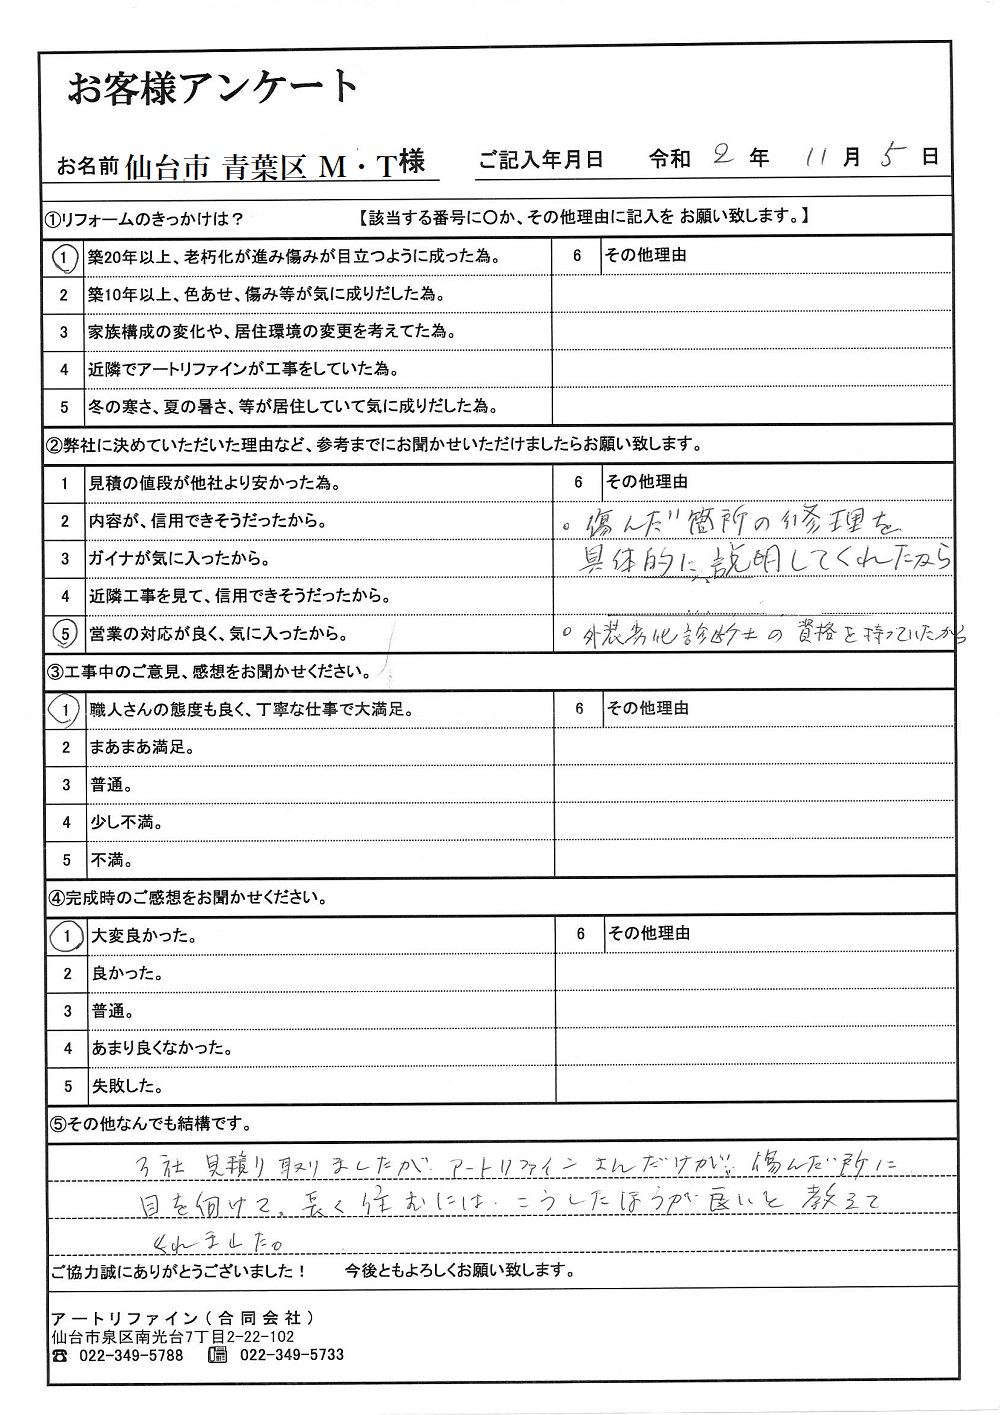 お客様アンケート
お名前 仙台市 青葉区 M・T様 ご記入年月日 令和 2 年 11 月 5 日
①リフォームのきっかけは? 【該当する番号に〇か、その他理由に記入を お願い致します。】
1 築20年以上、老朽化が進み傷みが目立つように成った為。 6 その他理由
2 築10年以上、色あせ、傷み等が気に成りだした為。
3 家族構成の変化や、居住環境の変更を考えてた為。
4 近隣でアートリファインが工事をしていた為。
5 冬の寒さ、夏の暑さ、等が居住していて気に成りだした為。
②弊社に決めていただいた理由など、参考までにお聞かせいただけましたらお願い致します。
1 見積の値段が他社より安かった為。 6 その他理由
2 内容が、信用できそうだったから。 。傷んだ箇所の修理を
3 ガイナが気に入ったから。 具体的に説明してくれたから
4 近隣工事を見て、信用できそうだったから。
5 営業の対応が良く、気に入ったから。 。外装劣化診断士の資格を持っていたから
③工事中のご意見、感想をお聞かせください。
1 職人さんの態度も良く、丁寧な仕事で大満足。 6 その他理由
2 まあまあ満足。
3 普通。
4 少し不満。
5 不満。
④完成時のご感想をお聞かせください。
1 大変良かった。 6 その他理由
2 良かった。
3 普通。
4 あまり良くなかった。
5 失敗した。
⑤その他なんでも結構です。
3社 見積り取りましたが、アートリファインさんだけが、傷んだ所に
目を向けて。長く住むには、こうしたほうが良いと教えて
くれました。
ご協力誠にありがとうございました! 今後ともよろしくお願い致します。
アートリファイン(合同会社)
仙台市泉区南光台7丁目2-22-102
☎ 022-349-5788 📠 022-349-5733